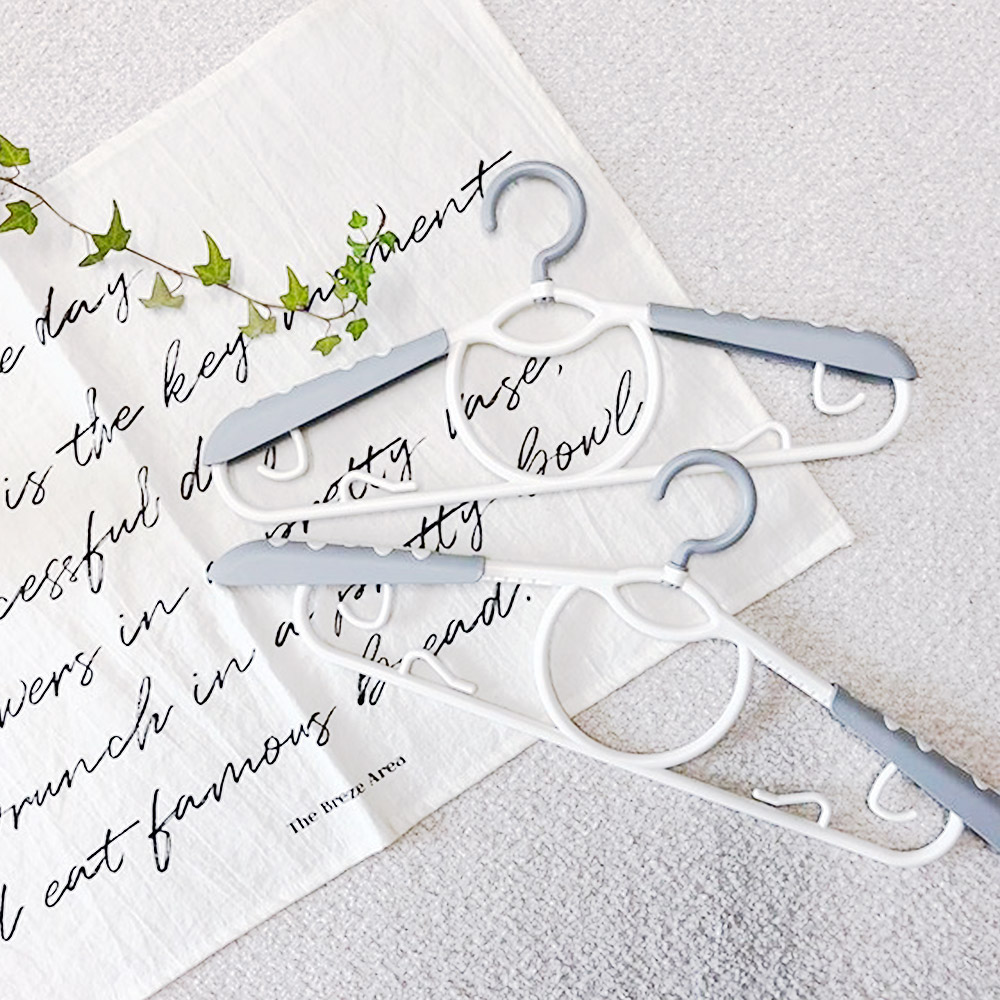 e day
is the key moment
cessful d
pretty vase,
wers in a pretty bowl
crunch in a p
bread.
l eat famous
The Breze Area